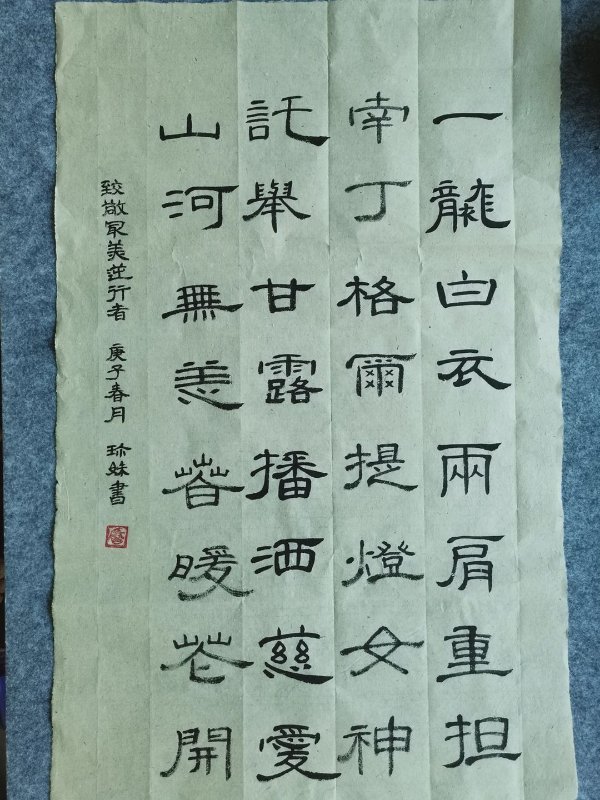 一龍白衣兩肩重担
南丁格爾提燈女神
託舉甘露播洒慈愛
山河無恙春暖花開
致敬最美逆行者 庚子春月 珍妹書